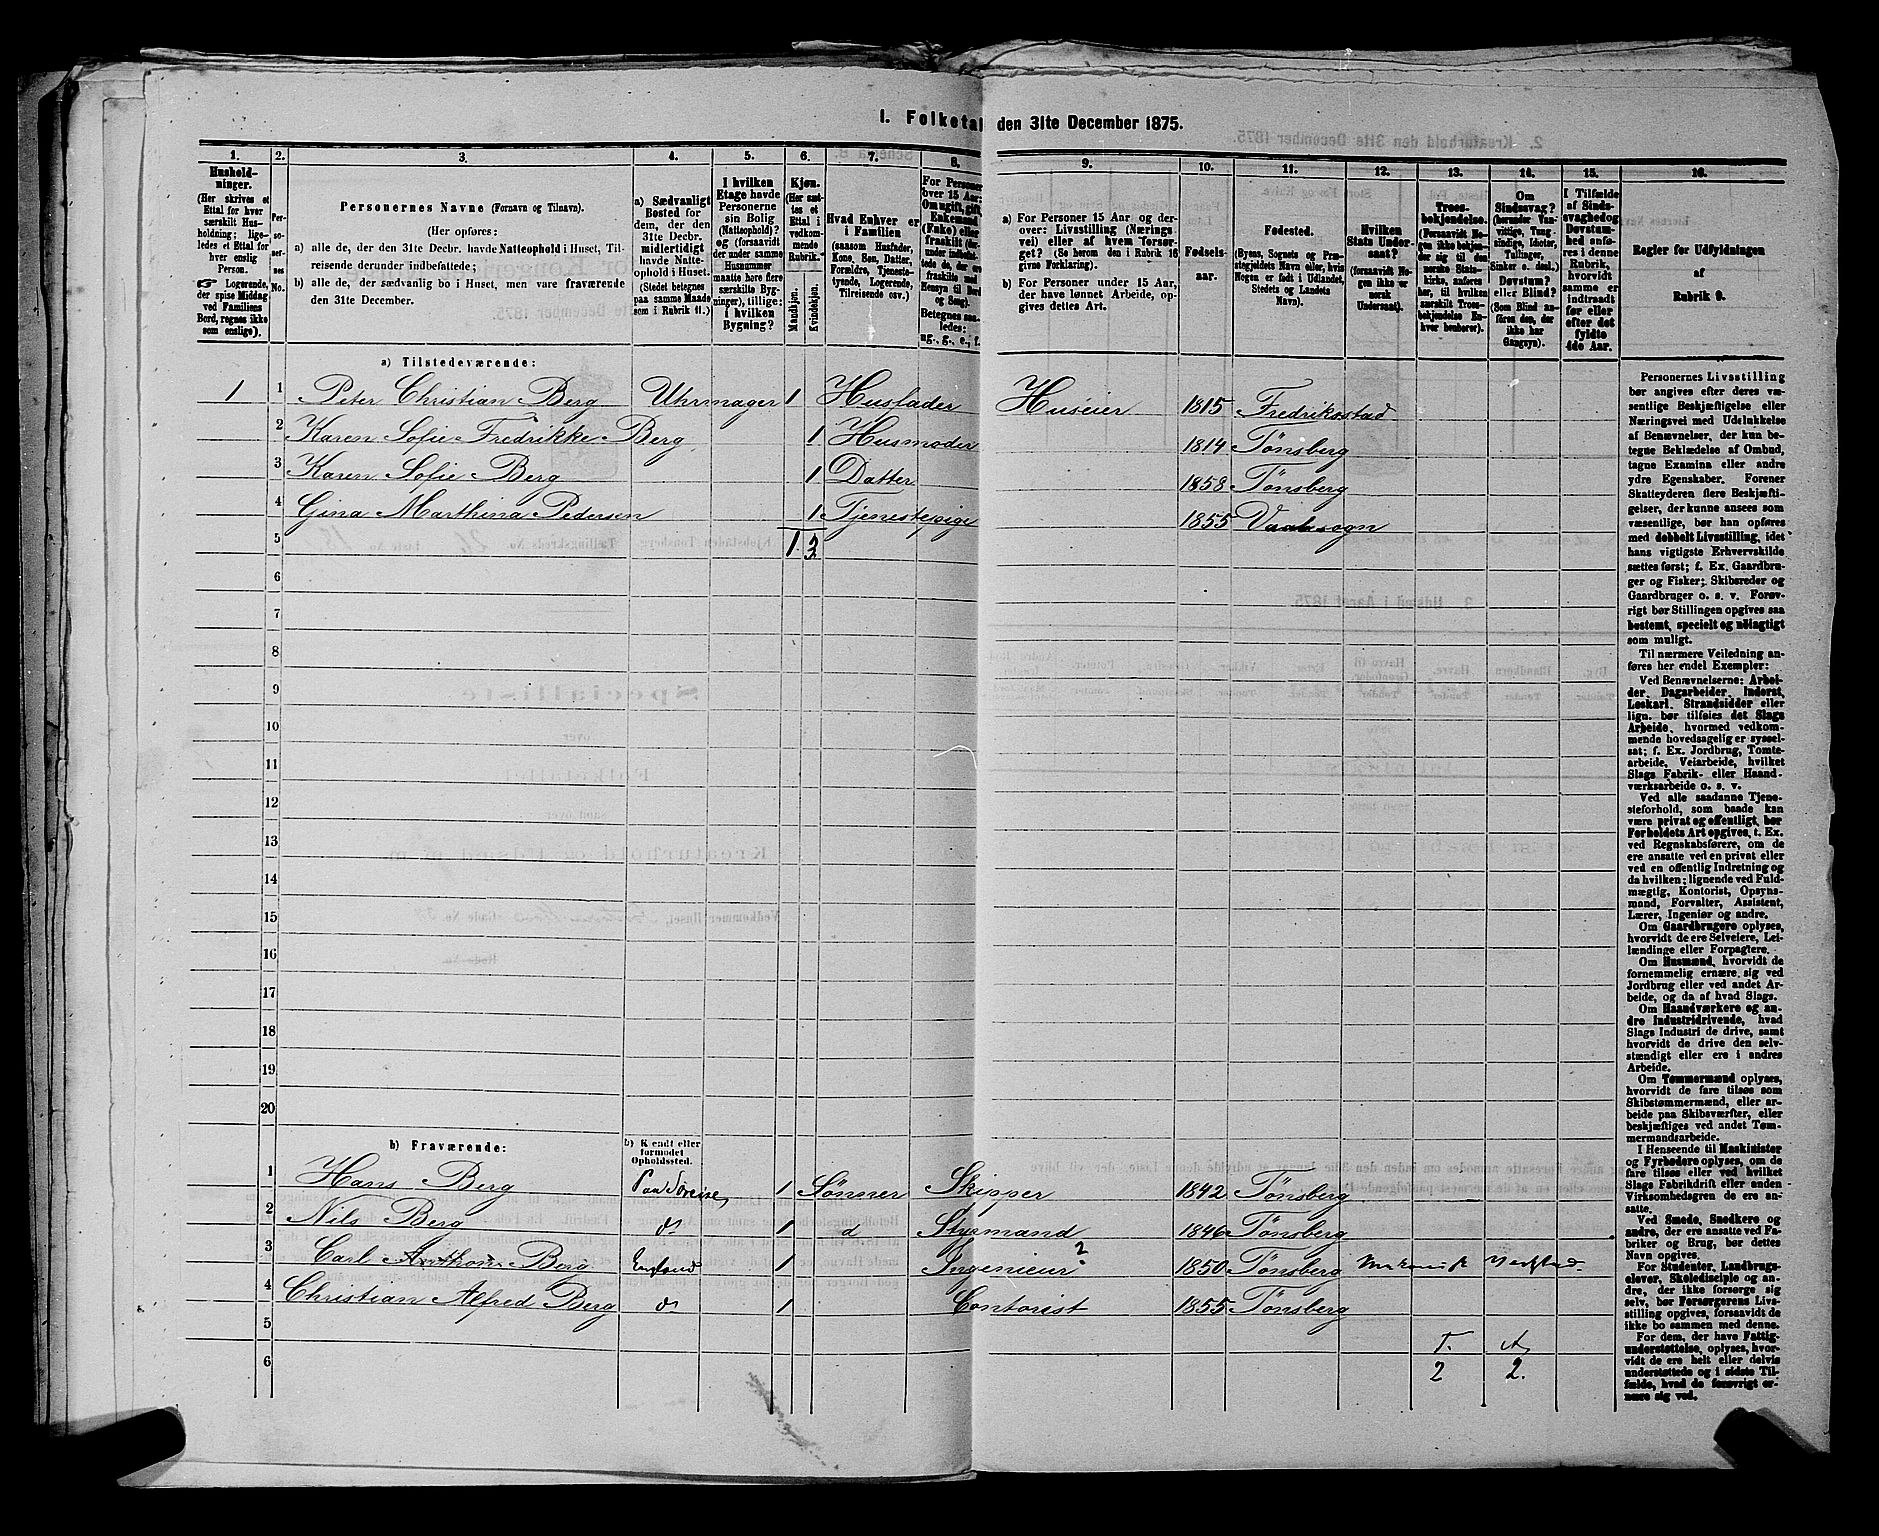 1. Folketal den 31te December 1875.
1. 2. 3. 4. 5. 6. 7. 8. 9. 10. 11. 12. 13. 14. 15. 16.
Hushold-
ninger.
(Her skrives et
Ettal for hver
særskilt Hus-
holdning; lige-
ledes et Ettal for
hver enslig
Person.
Logerende,
der spise Middag
ved Familiens
Bord, regnes ikke
som enslige).
Per-
so-
ner-
nes
No.
Personernes Navne (Fornavn og Tilnavn).
(Her opføres:
a) alle de, der den 31te Decbr. havde Natteophold i Huset, Til-
reisende derunder indbefattede;
b) alle de, der sædvanlig bo i Huset, men vare fraværende
den 31te December.
a) Sædvanligt
Bosted for
dem, der den
31te Decbr.
midlertidigt
havde Natte-
ophold i Huset.
(Stedet betegnes
paa samme Maade
som i Rubrik 11.)
I hvilken
Etage havde
Personerne
sin Bolig
(Natteophold)?
og (forsaavidt
der under samme
Husnummer
maatte høre flere
særskilte Byg-
ninger), tillige:
i hvilken
Bygning?
Kjøn.
(Her sæt-
tes et
Ettal i
vedkom-
mende
Rubrik.)
Mandkjøn.
Kvindekjøn.
Hvad Enhver er
i Familien
(saasom Husfader,
Kone, Søn, Datter,
Forældre, Tjeneste-
tyende, Logerende,
Tilreisende osv.)
For Personer
over 15 Aar:
Om ugift, gift,
Enkemand
(Enke) eller
fraskilt
Betegnes saa-
ledes:
ug., g., e., f.
a) For Personer 15 Aar og der-
over: Livsstilling (Nærings-
vei) eller af hvem forsør-
get? (Se herom den i Rubrik 16
givne Forklaring).
b) For Personer under 15 Aar,
der have lønnet Arbeide, op-
gives dettes Art.
Fødsels-
aar.
Fødested.
(Byens, Sognets og Præ-
stegjeldets Navn eller, hvis
Nogen er født i Udlandet,
Stedets og Landets
Navn).
Hvilken
Stats Under-
saat?
(forsaavidt No-
gen ikke er
norsk
Undersaat).
Troes-
bekjendelse.
(Forsaavidt No-
gen ikke bekjen-
der sig til den
norske Stats-
kirke, anføres
her, til hvilken
særskilt Troes-
bekjendelse En-
hver henhører).
Om
Sindssvag?
(herunder Van-
vittige, Tung-
sindige, Idioter,
Tullinger,
Sinker o. desl.)
Døvstum?
eller Blind?
(Som Blind an-
føres den, der
ikke har
Gangsyn).
I Tilfælde
af Sinds-
svaghed og
Døvstum-
hed anfø-
res i denne
Rubrik,
hvorvidt
samme er
indtraadt
før eller
efter det
fyldte
4de Aar.
Regler for Udfyldningen
af
Rubrik 9.
a) Tilstedeværende:
1 1 Peter Christian Berg Uhrmager 1 Husfader Huseier 1815 Fredriksstad
2 Karen Sofie Fredrikke Berg 1 Husmoder 1814 Tønsberg
3 Karen Sofie Berg 1 Datter 1858 Tønsberg
4 Gina Marthina Pedersen 1 Tjenestepige 1855
5 1 3
6
7
8
9
10
11
12
13
14
15
16
17
18
19
20
b) Fraværende:
b) Kjendt eller
formodet
Opholdssted.
1 Hans Berg 1 Sønner Skipper 1842 Tønsberg
2 Nils Berg do 1 d Styrmand 1846 Tønsberg
3 Carl Anthon Berg England 1 Ingenieur? 1850 Tønsberg
4 Christian Alfred Berg do 1 Contorist 1855 Tønsberg
5 T. A.
6 2 2.
Personernes Livsstilling
bør angives efter deres væ-
sentlige Beskjæftigelse eller
Næringsvei med Udelukkelse
af Benævnelser, der kun be-
tegne Beklædelse af Ombud,
tagne Examina eller andre
ydre Egenskaber. Forener
Skatteyderen flere Beskjæfti-
gelser, der kunne ansees som
væsentlige, bør han opføres
med dobbelt Livsstilling, idet
hans vigtigste Erhvervskilde
sættes først; f. Ex. Gaardbru-
ger og Fisker; Skibsreder og
Gaardbruger o. s. v. Forøv-
rigt bør Stillingen opgives saa
bestemt, specielt og nøiagtigt
som muligt.
Til nærmere Veiledning an-
føres her endel Exempler:
Ved Benævnelserne: Arbei-
der, Dagarbeider, Inderst,
Løskarl, Strandsidder eller
lign. bør tilføies det Slags
Arbeide, hvormed vedkom-
mende hovedsagelig er syssel-
sat; f. Ex. Jordbrug, Tomte-
arbeide, Veiarbeide, hvilket
Slags Fabrik- eller Haand-
værksarbeide o. s. v.
Ved alle saadanne Tjene-
steforhold, som baade kan
være privat og offentligt, bør
Forholdets Art opgives, t. Ex.
ved Regnskabsførere, om de
ere ansatte ved en privat eller
ved en offentlig Indretning og
da hvilken; lignende ved Fuld-
mægtig, Kontorist, Opsyns-
mand, Forvalter, Assistent,
Lærer, Ingeniør og andre.
Om Gaardbrugere oplyses,
hvorvidt de ere Selveiere, Lei-
lændinge eller Forpagtere.
Om Husmænd, hvorvidt de
fornemmelig ernære sig ved
Jordbrug eller ved andet Ar-
beide, og da af hvad Slags.
Om Haandværkere og an-
dre Industridrivende, hvad
Slags Industri de drive, samt
hvorvidt de drive den selv-
stændigt eller ere i andres
Arbeide.
Om Tømmermænd oplyses,
hvorvidt de fare tilsøs som
Skibstømmermænd, eller ar-
beide paa Skibsværfter, eller
beskjæftiges ved andet Tøm-
mermandsarbeide.
I Henseende til Maskinister
og Fyrbødere oplyses, om de
fare tilsøs eller ved hvilket
Slags Fabrikdrift eller anden
Virksomhedsgren de ere an-
satte.
Ved Smede, Snedkere og
andre, der ere ansatte ved Fa-
briker og Brug, bør dettes
Navn opgives.
For Studenter, Landbrugs-
elever, Skoledisciple og an-
dre, der ikke forsørge sig
selv, bør Forsørgerens Livs-
stilling opgives, forsaavidt de
ikke bo sammen med denne.
For dem, der have Fattig-
understøttelse, oplyses, hvor-
vidt de ere helt eller delvis
understøttede og i sidste Til-
fælde, hvad de forøvrigt er-
nære sig ved.